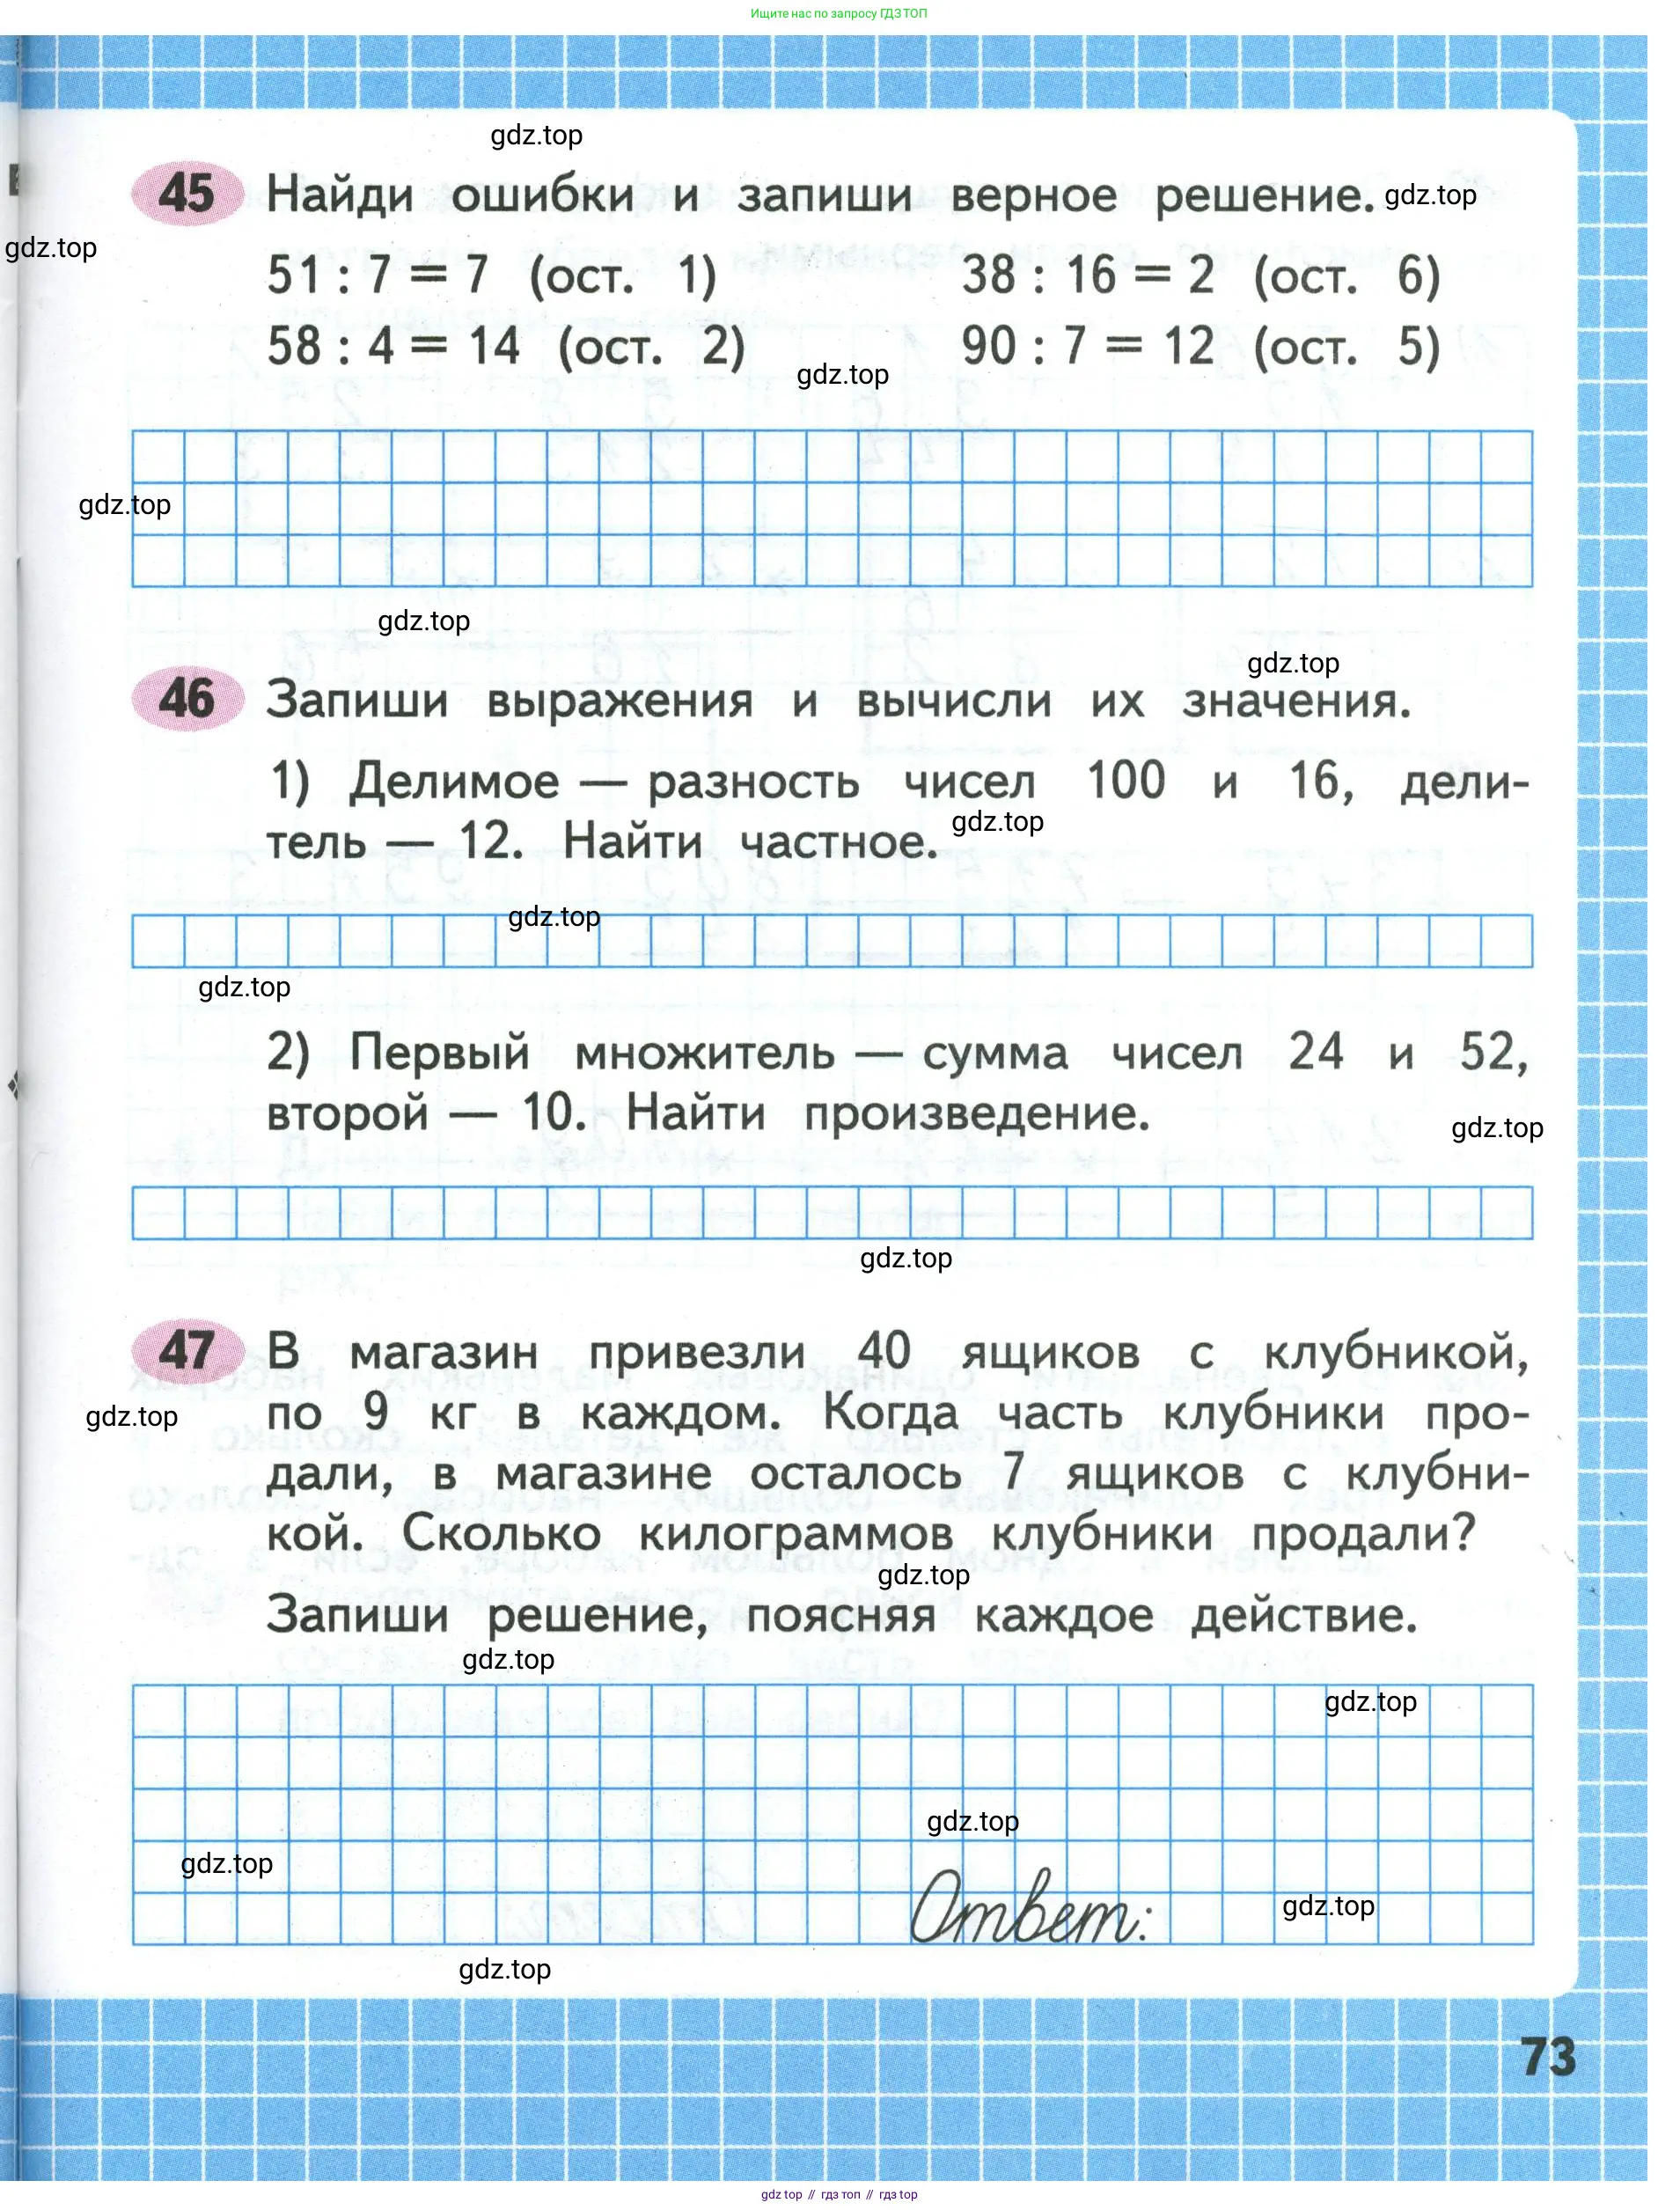 Ищите нас по запросу ГДЗ ТОП
gdz.top
45 Найди ошибки и запиши верное решение. gdz.top
gdz.top
51 : 7 = 7 (ост. 1) 38 : 16 = 2 (ост. 6)
58 : 4 = 14 (ост. 2) 90 : 7 = 12 (ост. 5)
gdz.top
gdz.top
gdz.top
gdz.top
46 Запиши выражения и вычисли их значения.
1) Делимое — разность чисел 100 и 16, дели-
тель — 12. Найти частное. gdz.top
gdz.top
gdz.top
2) Первый множитель — сумма чисел 24 и 52,
второй — 10. Найти произведение.
gdz.top
gdz.top
47 В магазин привезли 40 ящиков с клубникой,
gdz.top
по 9 кг в каждом. Когда часть клубники про-
дали, в магазине осталось 7 ящиков с клубни-
кой. Сколько килограммов клубники продали?
gdz.top
Запиши решение, поясняя каждое действие.
gdz.top
gdz.top
gdz.top
gdz.top
Ответ: gdz.top
gdz.top
73
gdz top // гдз топ // гдз top